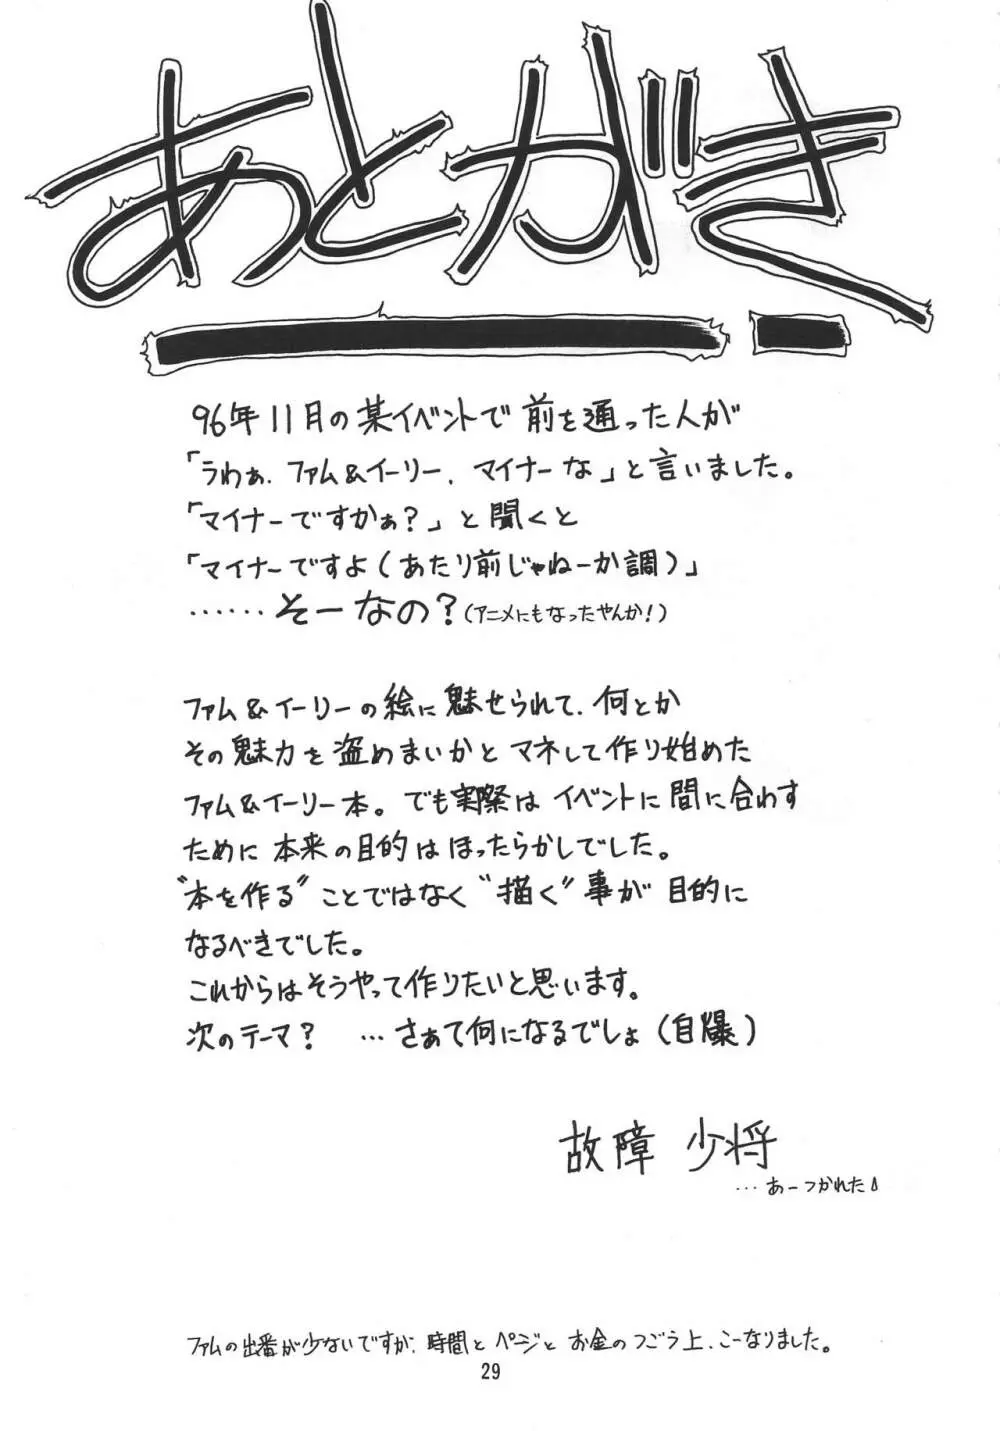 あとがき
96年11月の某イベントで前を通った人が
「うわぁ、ファム&イーリー、マイナーな」と言いました。
「マイナーですかぁ？」と聞くと
「マイナーですよ(あたり前じゃねーか調)」
……そーなの？(アニメにもなったやんか！)
ファム&イーリーの絵に魅せられて、何とか
その魅力を盗めまいかとマネして作り始めた
ファム&イーリー本。でも実際はイベントに間に合わす
ために本来の目的はほったらかしでした。
“本を作る”ことではなく“描く”事が目的に
なるべきでした。
これからはそうやって作りたいと思います。
次のテーマ？ …さぁて何になるでしょ(自爆)
故障 少将
…あーつかれた
ファムの出番が少ないですが、時間とページとお金のつごう上、こーなりました。
29